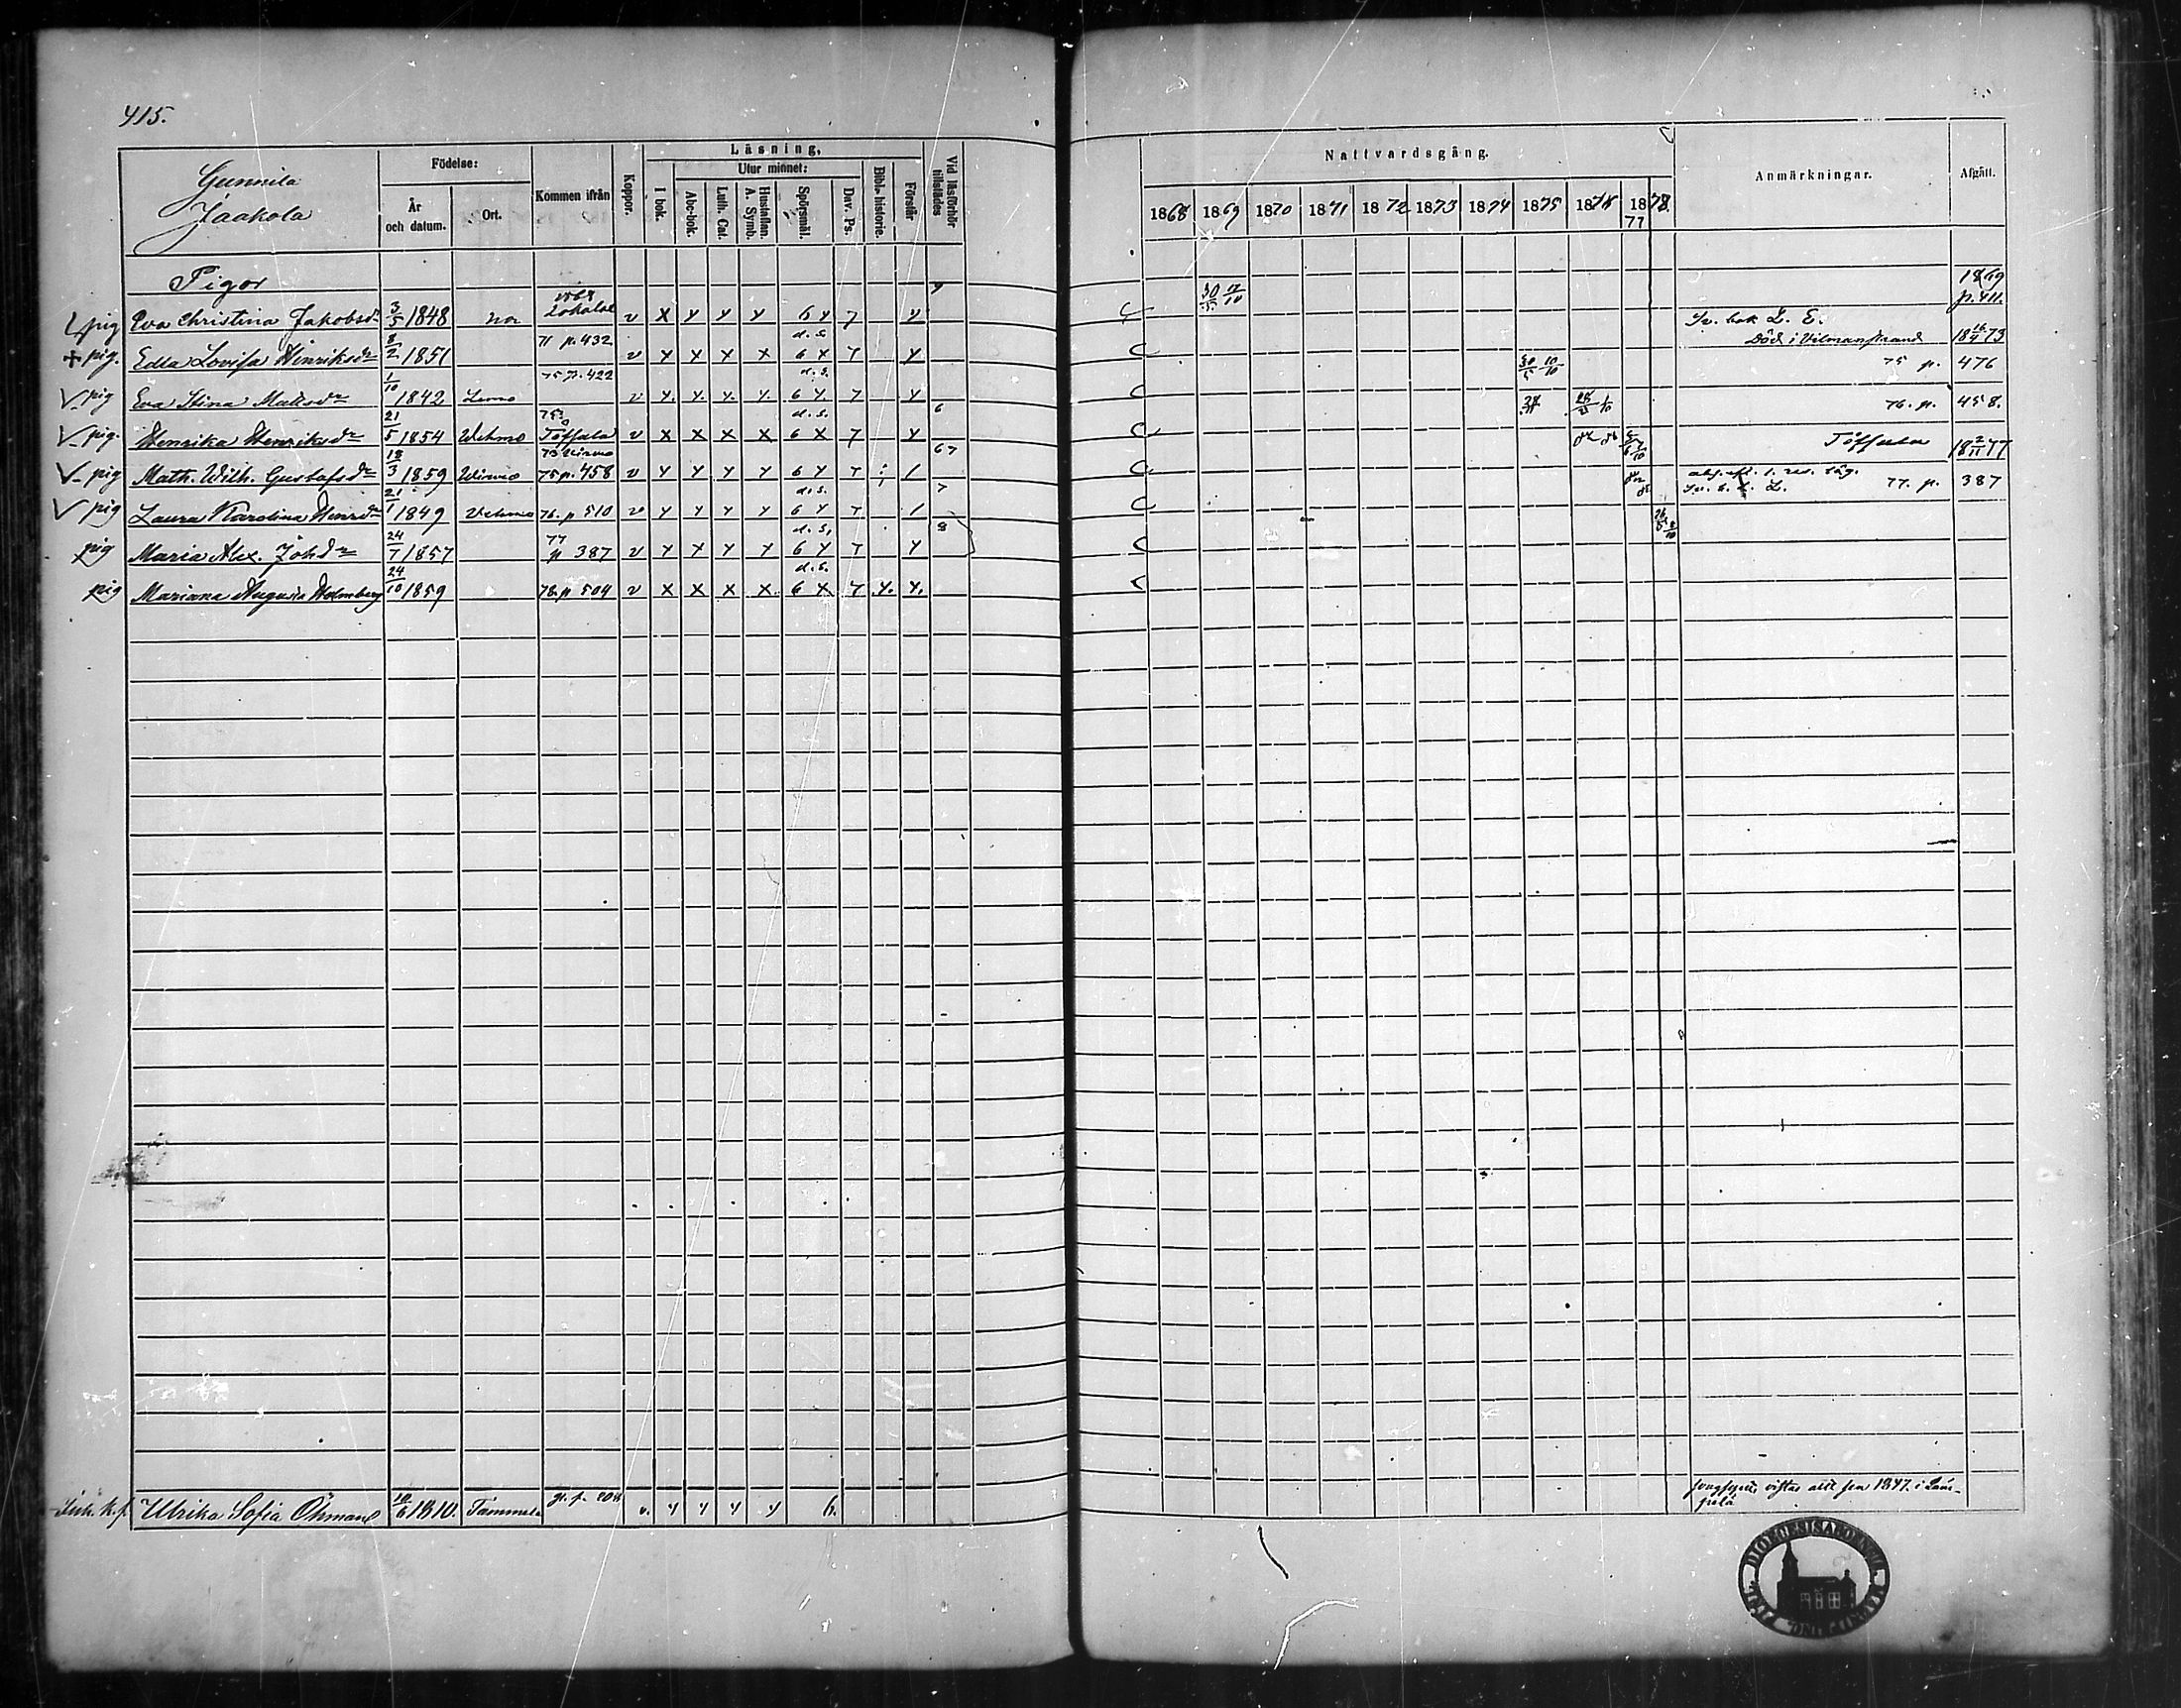 415.
Gunnila
Jaakola
Födelse:
År och datum.
Ort.
Kommen ifrån
Koppor.
Läsning,
I bok.
Utur minnet:
Abc-bok.
Luth. Cat.
Hustaflan. A. Symb.
Spörsmål.
Dav. Ps.
Bibl. historie.
Förstår
Vid läsförhör tillstädes
Nattvardsgång.
1868 1869 1870 1871 1872 1873 1874 1875 1876 1877 78.
Anmärkningar.
Afgått.
Pigor
pig Eva Christina Jakobsdr 3/5 1848 v x y y y 6 y 7 y 30/5 17/10 1869 p. 411.
+ pig. Edla Lovisa Hinriksdr 8/2 1851 71 p. 432 v x x x x d. s. 6 x 7 y C Sr. bok L. E. Död i Vilmanstrand 18 16/4 73
pig Eva Stina Mattsdr 1/10 1842 Lemo 75 p. 422 v y. y. y. y. d. s. 6 y. 7 y C 30/5 10/10 75 p. 476
pig. Henrika Henriksdr 21/5 1854 Vehmo v x x x x d. s. 6 x 7 y 6 C 76. p. 458.
pig Math. Wilh. Gustafsdr 18/3 1859 Wirmo 75 p. 458 v y y y y 6 y 7 / 67 C Töffsala 18 2/11 77
pig Laura Karolina Henrdr 21/1 1849 Vehmo 76. p 510 v y y y y d. s. 6 y 7 / 7 C 77. p. 387
pig Maria Alex. Johdr 24/7 1857 77 p 387 v y y y y d. s. 6 y 7 y 8 C
pig Mariana Augusta Holmberg 24/10 1859 78. p 504 v x x x x d. s. 6 x 7 y. y. C
Inh. Ulrika Sofia Öhman 10/6 1810. Tammela v. y y y y 6. 1847. i